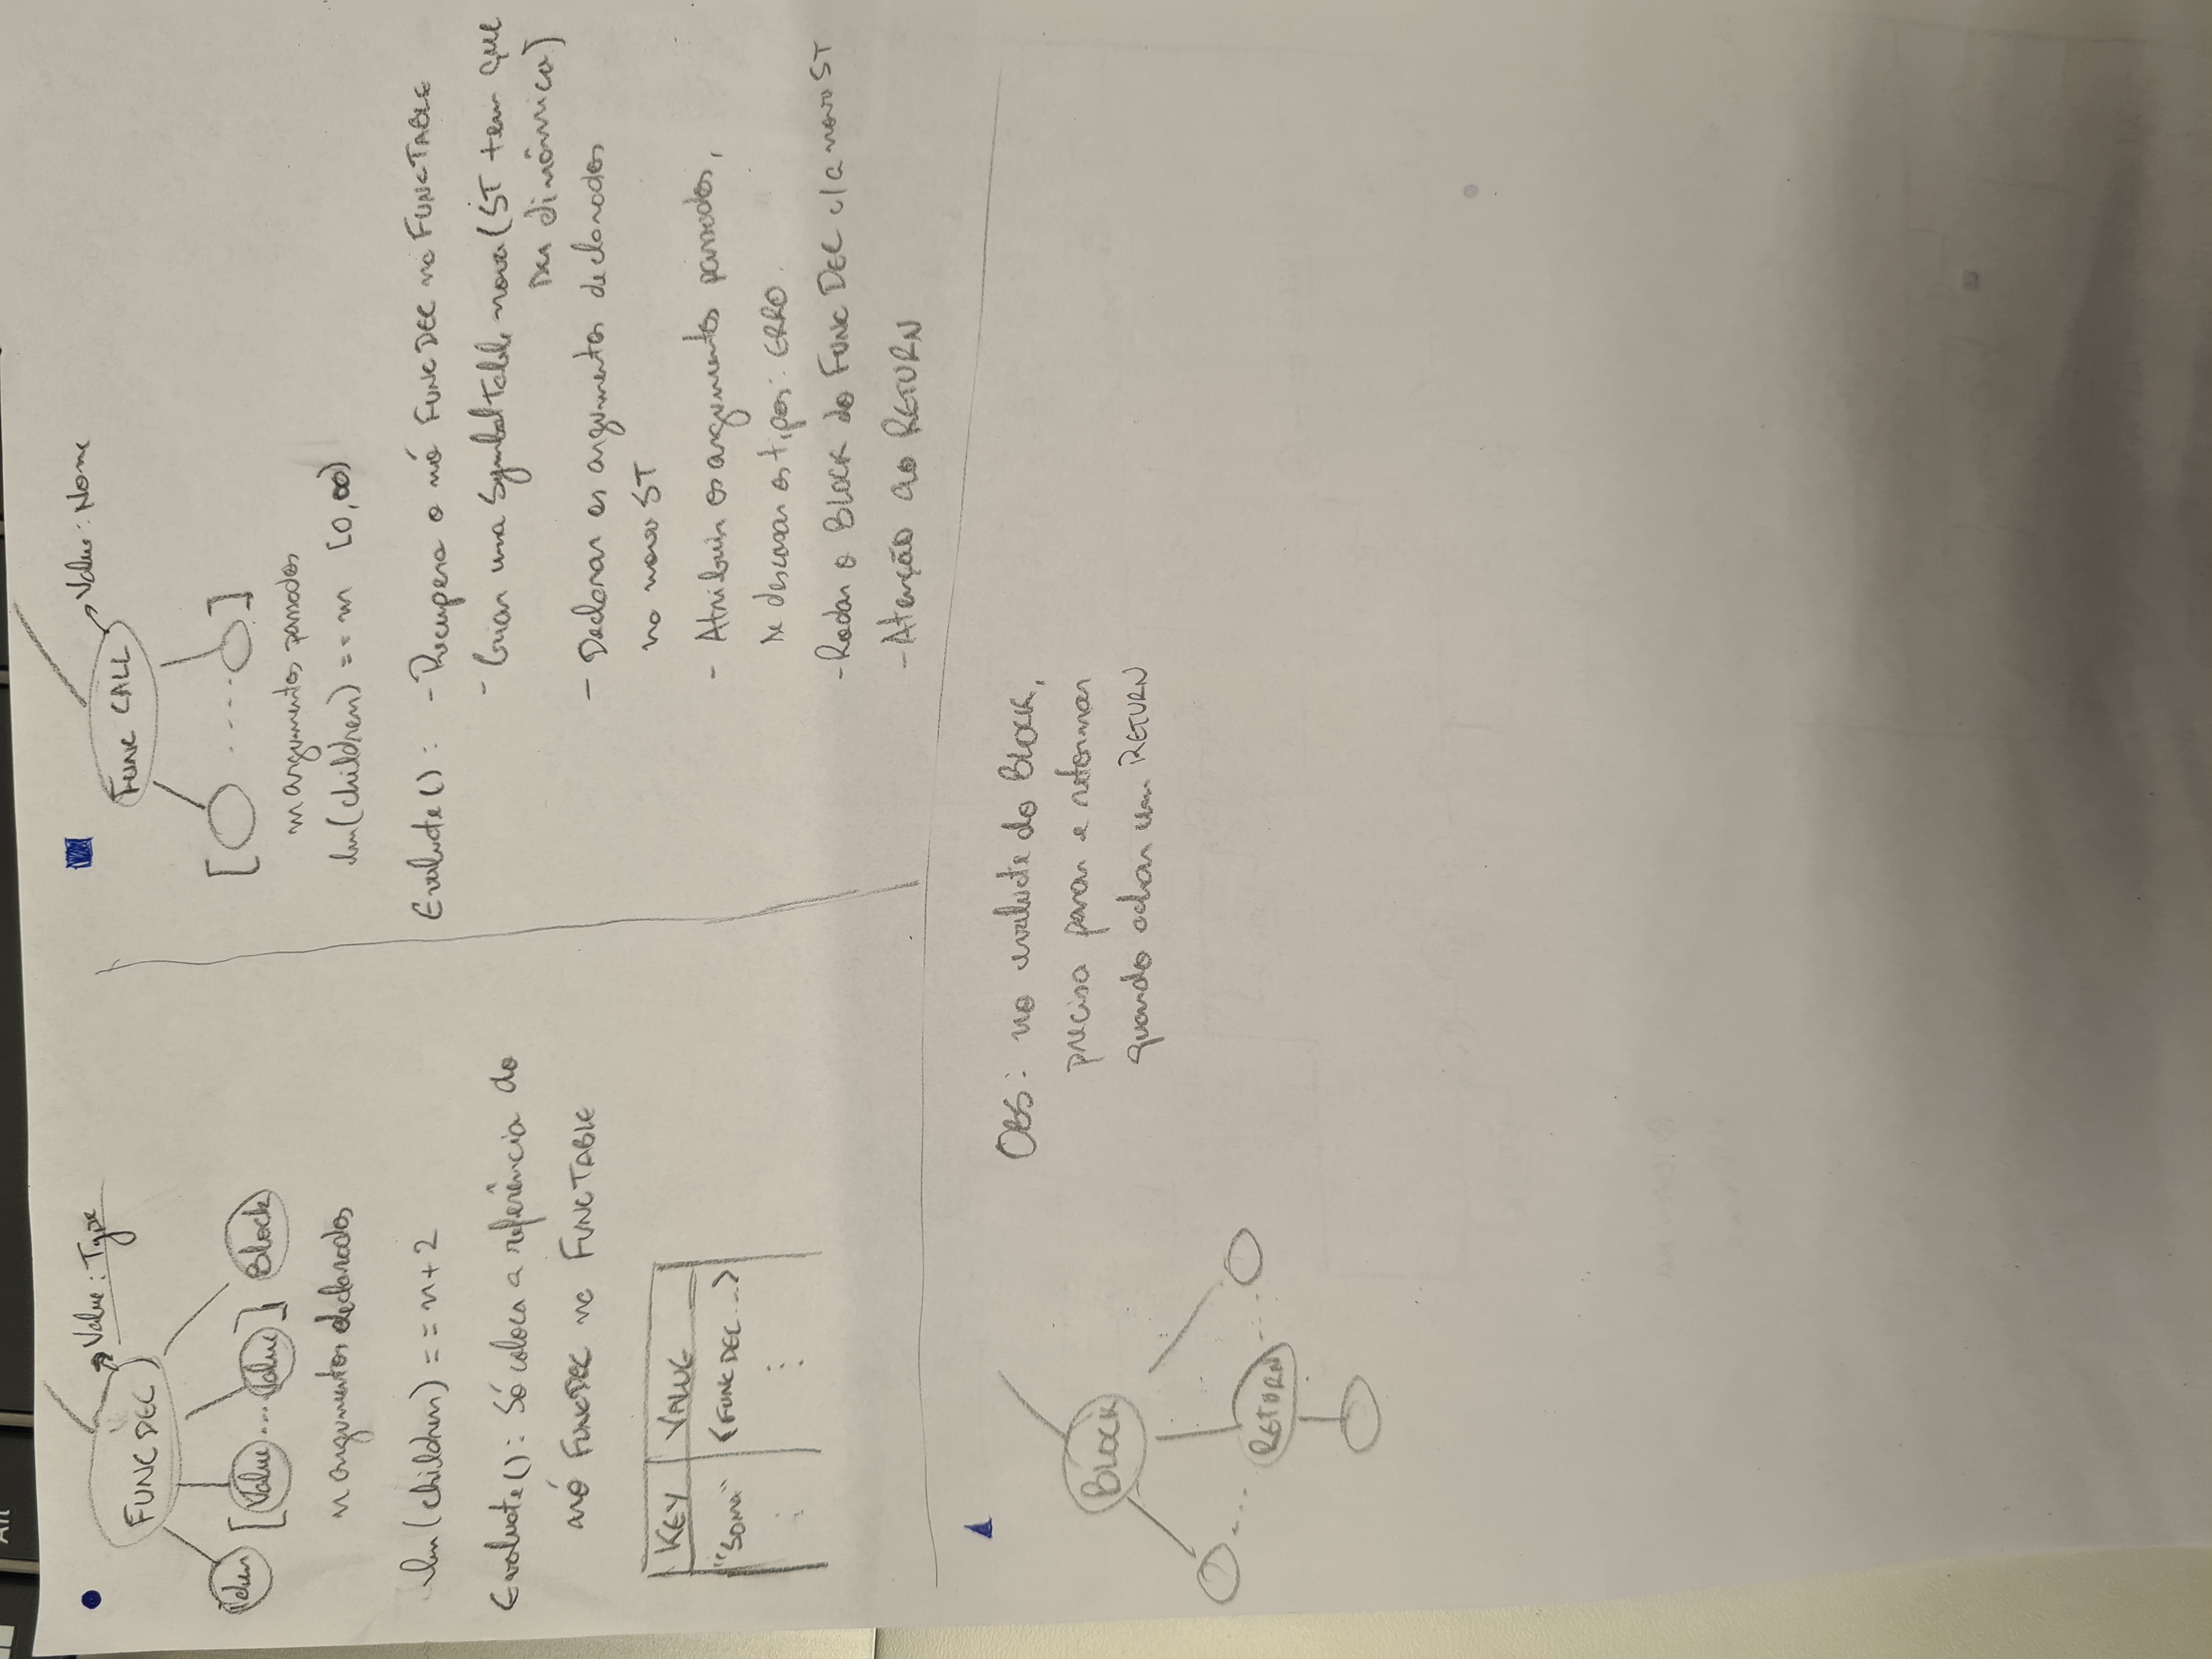 Alt
Value: Type
FUNC DEC
Iden [Value .... Value] Block
n argumentos declarados
len(children) == n+2
Evaluate(): Só coloca a referência do
nó FUNCDEC na FUNCTABLE
KEY VALUE
"SOMA" <FUNC DEC ...>
Value: Nome
FUNC CALL
[ ..... ]
m argumentos passados
len(children) == m [0,∞)
Evaluate(): - Recupera o nó FUNCDEC na FUNCTABLE
- Criar uma SymbolTable nova (ST tem que
ser dinâmica)
- Declarar os argumentos declarados
na nova ST
- Atribuir os argumentos passados,
se descasar os tipos: ERRO.
- Rodar o BLOCK do FUNC DEC c/ a nova ST
- Atenção ao RETURN
BLOCK
RETURN
OBS: no evaluate do BLOCK,
precisa parar e retornar
quando achar um RETURN